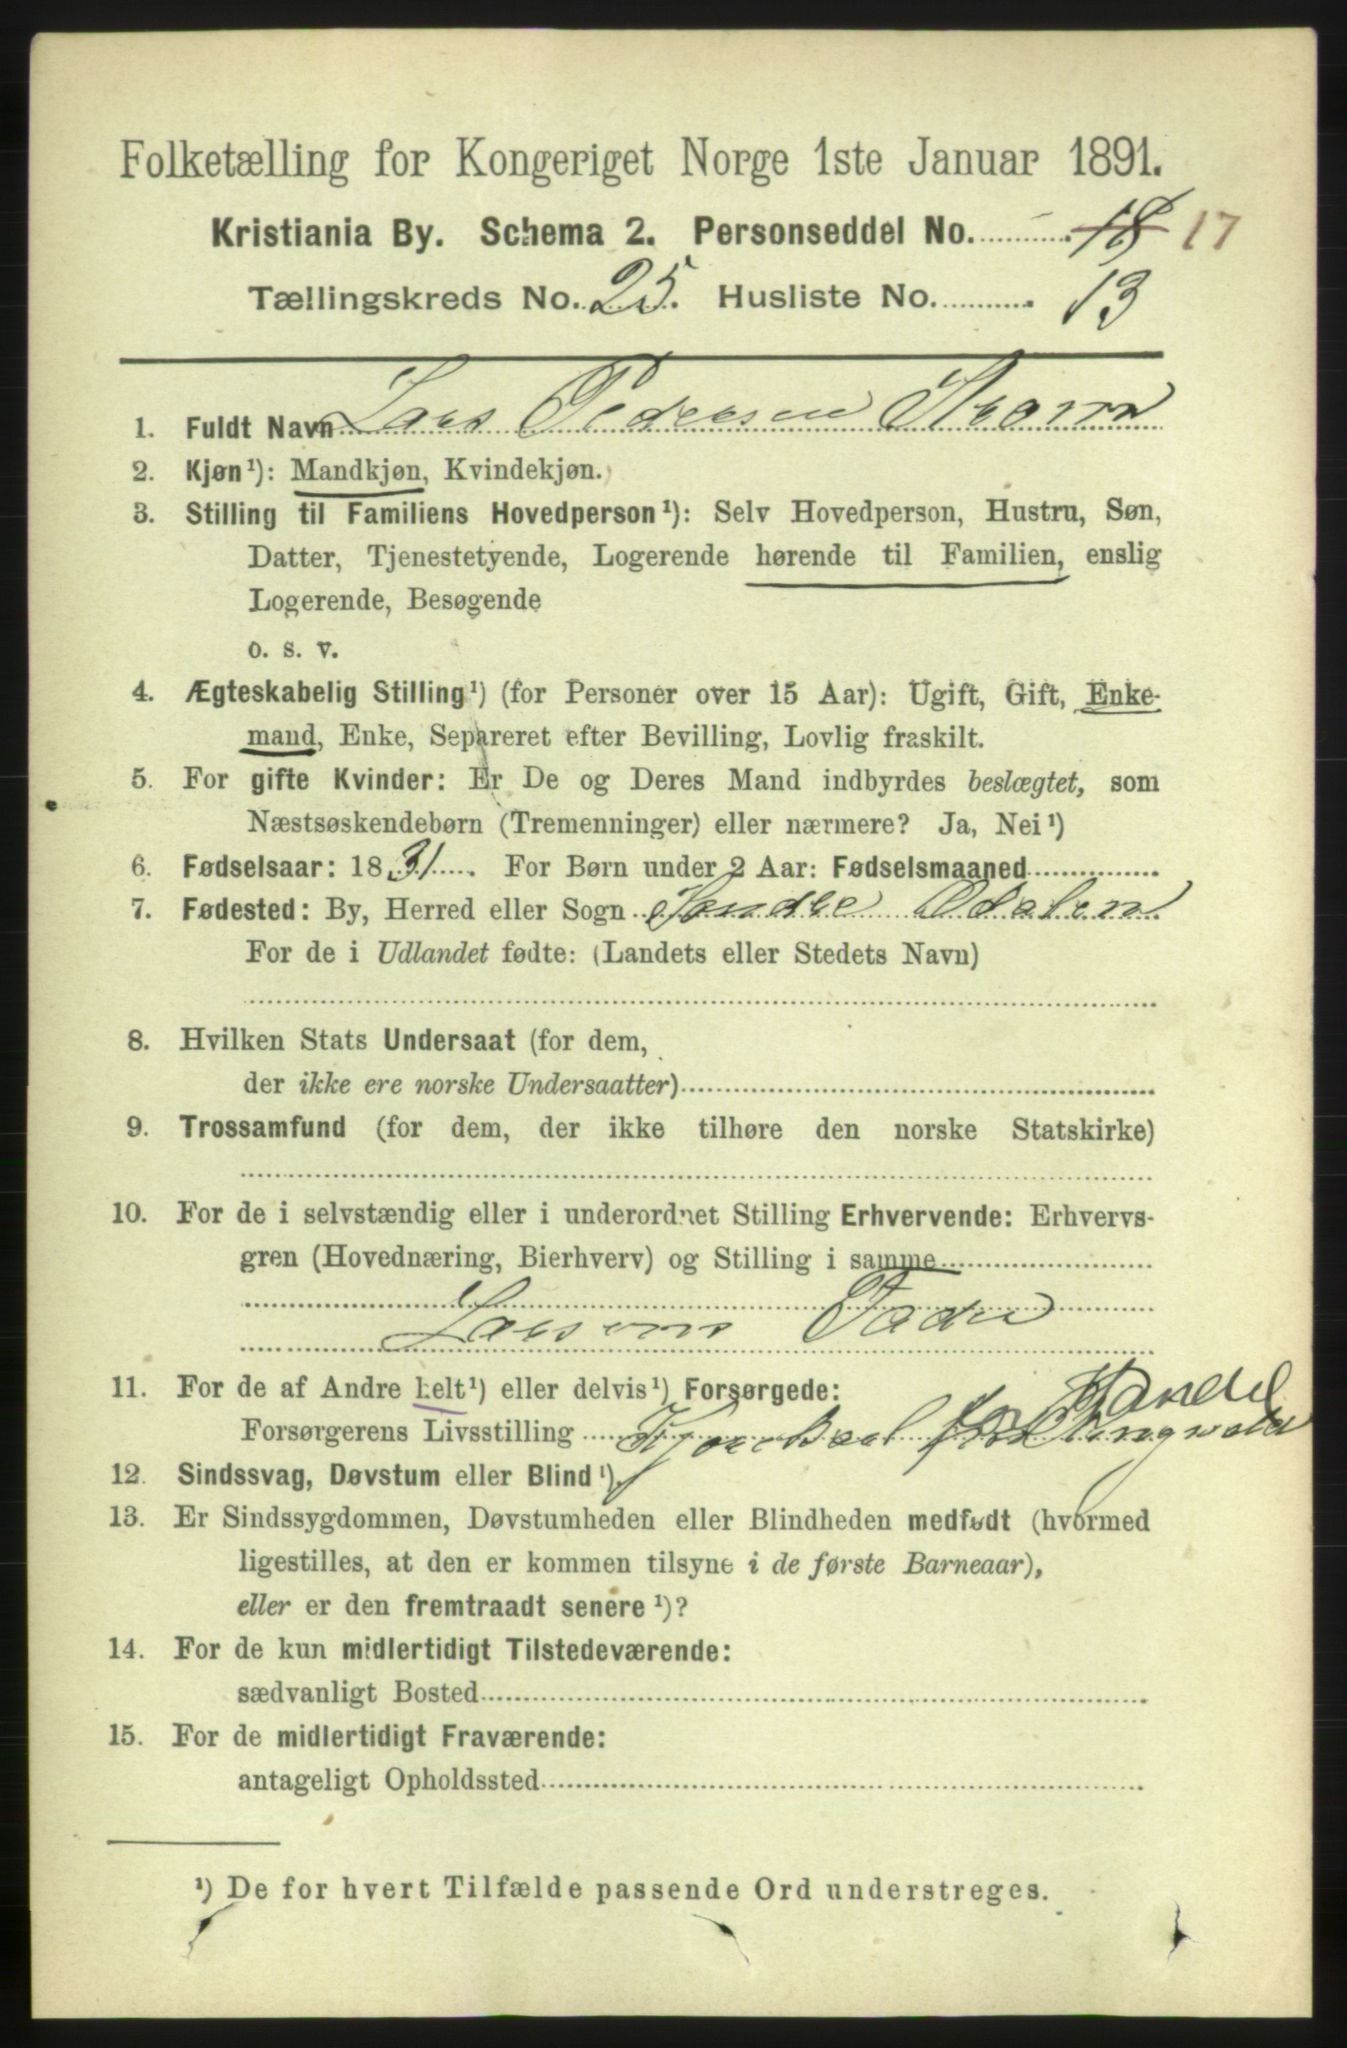 Folketælling for Kongeriget Norge 1ste Januar 1891.
Kristiania By. Schema 2. Personseddel No. 18 17
Tællingskreds No. 25. Husliste No. 13
1. Fuldt Navn Lars Pedersen Strøm
2. Kjøn¹): Mandkjøn, Kvindekjøn.
3. Stilling til Familiens Hovedperson¹): Selv Hovedperson, Hustru, Søn,
Datter, Tjenestetyende, Logerende hørende til Familien, enslig
Logerende, Besøgende
o. s. v.
4. Ægteskabelig Stilling¹) (for Personer over 15 Aar): Ugift, Gift, Enke-
mand, Enke, Separeret efter Bevilling, Lovlig fraskilt.
5. For gifte Kvinder: Er De og Deres Mand indbyrdes beslægtet, som
Næstsøskendebørn (Tremenninger) eller nærmere? Ja, Nei¹)
6. Fødselsaar: 1831. For Børn under 2 Aar: Fødselsmaaned
7. Fødested: By, Herred eller Sogn Søndre Odalen
For de i Udlandet fødte: (Landets eller Stedets Navn)
8. Hvilken Stats Undersaat (for dem,
der ikke ere norske Undersaatter)
9. Trossamfund (for dem, der ikke tilhøre den norske Statskirke)
10. For de i selvstændig eller i underordnet Stilling Erhvervende: Erhvervs-
gren (Hovednæring, Bierhverv) og Stilling i samme
Larsens Fader
11. For de af Andre helt¹) eller delvis¹) Forsørgede:
Handel
Forsørgerens Livsstilling
12. Sindssvag, Døvstum eller Blind¹).
13. Er Sindssygdommen, Døvstumheden eller Blindheden medfødt (hvormed
ligestilles, at den er kommen tilsyne i de første Barneaar),
eller er den fremtraadt senere¹)?
14. For de kun midlertidigt Tilstedeværende:
sædvanligt Bosted
15. For de midlertidigt Fraværende:
antageligt Opholdssted
¹) De for hvert Tilfælde passende Ord understreges.